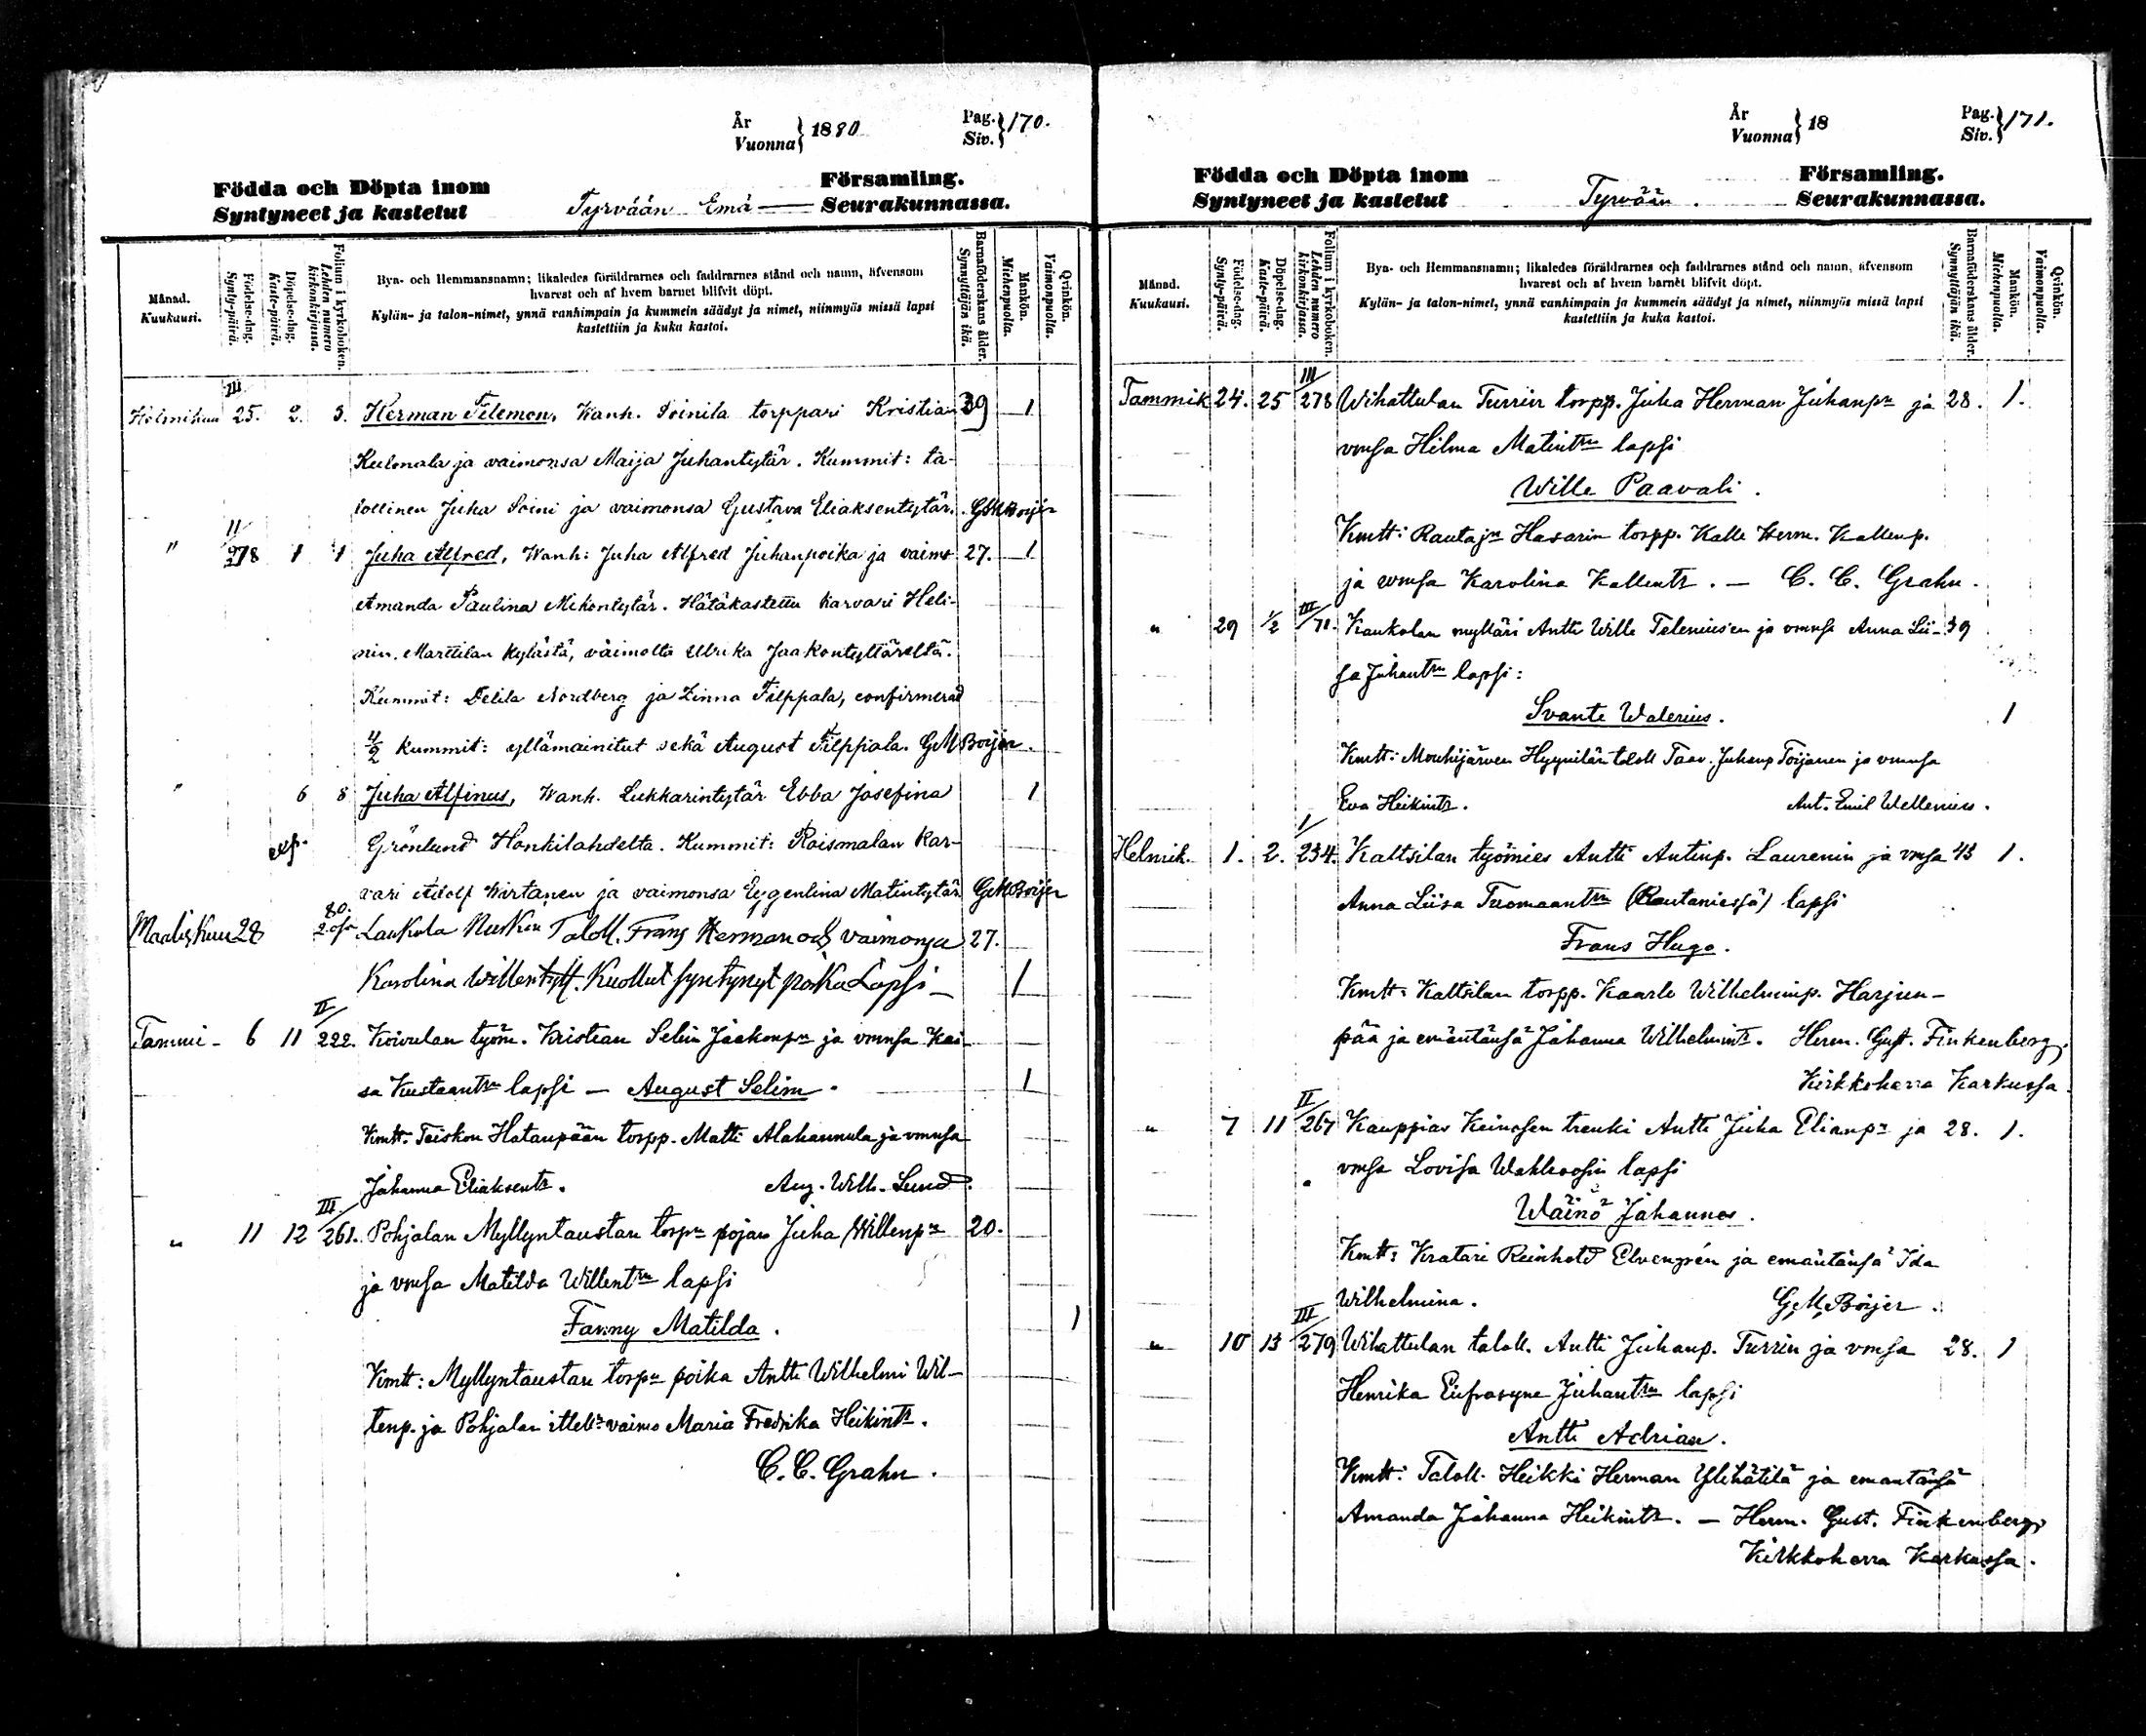 År
Vuonna } 1880
Pag.
Siv. } 170.
Födda och Döpta inom
Syntyneet ja kastetut
Tyrvään Emä
Församling.
Seurakunnassa.
Månad.
Kuukausi.
Födelse-dag.
Synty-päivä.
Döpelse-dag.
Kaste-päivä.
Folium i kyrkoboken.
Lehden numero kirkonkirjassa.
Bya- och Hemmansnamn; likaledes föräldrarnes och faddrarnes stånd och namn, äfvensom
hvarest och af hvem barnet blifvit döpt.
Kylän- ja talon-nimet, ynnä vanhimpain ja kummein säädyt ja nimet, niinmyös missä lapsi
kastettiin ja kuka kastoi.
Barnaföderskans ålder.
Synnyttäjän ikä.
Mankön.
Miehenpuolta.
Qvinkön.
Vaimonpuolta.
III
25. 2. 3. Herman Filemon, Wanh. Soinila torppari Kristian 39 1
Kulmala ja vaimonsa Maija Juhantytär. Kummit: ta-
lollinen Juha Soini ja vaimonsa Gustava Eliaksentytär. GMBoijer
II
" 278 1 4 Juha Alfred, Wanh: Juha Alfred Juhanpoika ja vaimo 27. 1
Amanda Paulina Mikontytär. Hätäkastettu karvari Heli-
nin, Marttilan kylästä, vaimolta Ulrika Jaakontyttäreltä.
Kummit: Delila Nordberg ja Zinna Filppala, confirmerad
4/2 kummit: yllämainitut sekä August Filppala. GMBoijer.
" 6 8 Juha Alfinus, Wanh. Lukkarintytär Ebba Josefina 1
exp. Grönlund Honkilahdelta. Kummit: Roismalan kar-
vari Adolf Wirtanen ja vaimonsa Eygenlina Matintytär GMBoijer
80.
Maaliskuu 28 Laukula Nuskin Taloll. Frans Herman och vaimonsa 27.
Karolina Willentytt. Kuollut syntynyt poika Lapsi 1
II
Tammi- 6 11 222. Koivulan työm. Kristian Selin Jaakonpn ja vmnsa Kai-
sa Kustaantrn lapsi — August Selim. 1
Kmtt. Teiskon Hatanpään torpp. Matti Alahannula ja vmnsa
Johanna Eliaksentr. Aug. Wilh. Lund.
III
" 11 12 261. Pohjalan Myllyntaustan torpn pojan Juha Willenpn 20.
ja vmsa Matilda Willentrn lapsi
Fanny Matilda. 1
Kmtt: Myllyntaustan torpn poika Antti Wilhelmi Wil-
lenp. ja Pohjalan ittelln vaimo Maria Fredrika Heikintr.
C. C. Grahn.
År
Vuonna } 18
Pag.
Siv. } 171.
Födda och Döpta inom
Syntyneet ja kastetut
Tyrvään.
Församling.
Seurakunnassa.
Månad.
Kuukausi.
Födelse-dag.
Synty-päivä.
Döpelse-dag.
Kaste-päivä.
Folium i kyrkoboken.
Lehden numero kirkonkirjassa.
Bya- och Hemmansnamn; likaledes föräldrarnes och faddrarnes stånd och namn, äfvensom
hvarest och af hvem barnet blifvit döpt.
Kylän- ja talon-nimet, ynnä vanhimpain ja kummein säädyt ja nimet, niinmyös missä lapsi
kastettiin ja kuka kastoi.
Barnaföderskans ålder.
Synnyttäjän ikä.
Mankön.
Miehenpuolta.
Qvinkön.
Vaimonpuolta.
III
Tammik 24. 25 278 Wihattulan Turrin torpp. Juha Herman Juhanpn ja 28. 1.
vmsa Hilma Matintrn lapsi
Wille Paavali.
Kmtt: Rautajn Hasarin torpp. Kalle Herm. Kallenp.
ja vmsa Karolina Kallentr. — C. C. Grahn.
III
" 29 1/2 71. Kaukolan mylläri Antti Wille Telenius'en ja vmnsa Anna Lii- 39
sa Juhantrn lapsi:
Svante Walerius. 1
Kmtt: Mouhijärven Hyynilän taloll Taav. Juhanp Toijanen ja vmnsa
Eva Heikintr. Ant. Emil Wellenius.
I
Helmik. 1. 2. 234. Kaltsilan työmies Antti Antinp. Laurenin ja vmsa 43 1.
Anna Liisa Tuomaantrn (Rautaniessä) lapsi
Frans Hugo.
Kmtt: Kaltsilan torpp. Kaarle Wilhelminp. Harjun-
pää ja emäntänsä Johanna Wilhelmintr. Herm. Gust. Finkenberg,
Kirkkoherra Karkussa.
II
" 7 11 267 Kauppias Keinosen trenki Antti Juha Elianpn ja 28. 1.
vmsa Lovisa Wahlroosin lapsi
Wäinö Johannes.
Kmtt: Kratari Reinhold Elvengrén ja emäntänsä Ida
Wilhelmina. GMBoijer.
III
" 10 13 279 Wihattulan taloll. Antti Juhanp. Turrin ja vmsa 28. 1
Henrika Eufrosyne Juhantrn lapsi
Antti Adrian.
Kmtt: Taloll. Heikki Herman Ylihätilä ja emäntänsä
Amanda Johanna Heikintr. — Herm. Gust. Finkenberg,
Kirkkoherra Karkussa.